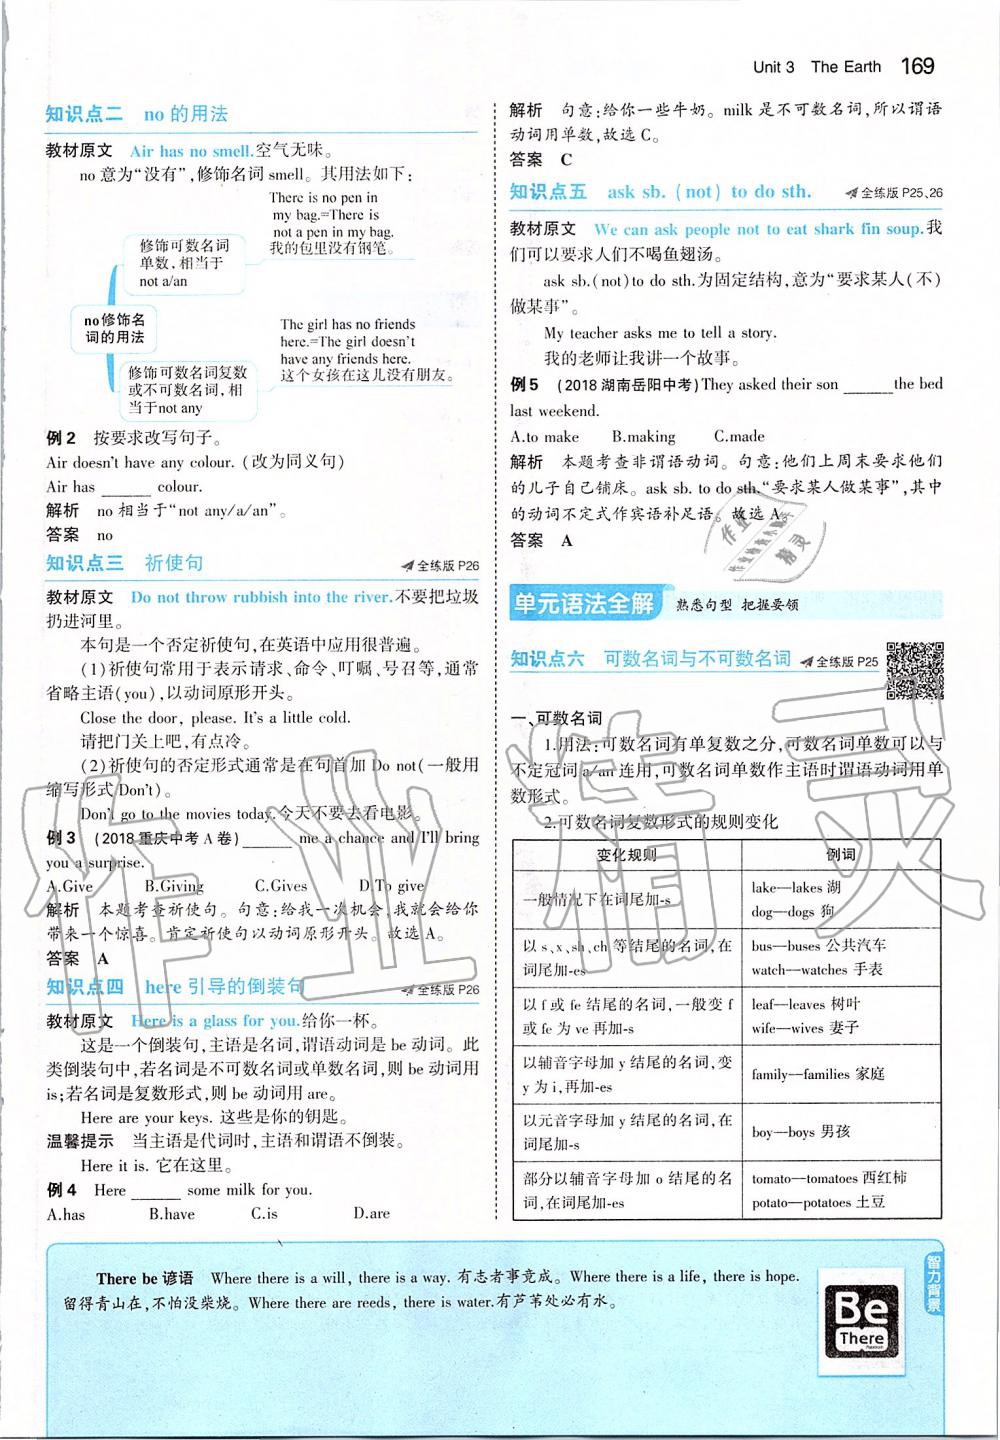 Unit 3 The Earth 169
知识点二 no 的用法
教材原文 Air has no smell.空气无味。
no 意为“没有”,修饰名词 smell。其用法如下:
There is no pen in
my bag.=There is
not a pen in my bag.
我的包里没有钢笔。
修饰可数名词
单数,相当于
not a/an
no修饰名
词的用法
The girl has no friends
here.=The girl doesn't
have any friends here.
这个女孩在这儿没有朋友。
修饰可数名词复数
或不可数名词,相
当于not any
例2 按要求改写句子。
Air doesn't have any colour. (改为同义句)
Air has ______ colour.
解析 no 相当于“not any/a/an”。
答案 no
知识点三 祈使句 全练版 P26
教材原文 Do not throw rubbish into the river.不要把垃圾
扔进河里。
本句是一个否定祈使句,在英语中应用很普遍。
(1)祈使句常用于表示请求、命令、叮嘱、号召等,通常
省略主语(you),以动词原形开头。
Close the door, please. It's a little cold.
请把门关上吧,有点冷。
(2)祈使句的否定形式通常是在句首加 Do not(一般用
缩写形式 Don't)。
Don't go to the movies today.今天不要去看电影。
例3 (2018 重庆中考 A 卷) ______ me a chance and I'll bring
you a surprise.
A.Give B.Giving C.Gives D.To give
解析 本题考查祈使句。句意:给我一次机会,我就会给你
带来一个惊喜。肯定祈使句以动词原形开头。故选 A。
答案 A
知识点四 here 引导的倒装句 全练版 P26
教材原文 Here is a glass for you.给你一杯。
这是一个倒装句,主语是名词,谓语动词是 be 动词。此
类倒装句中,若名词是不可数名词或单数名词,则 be 动词用
is;若名词是复数形式,则 be 动词用 are。
Here are your keys. 这些是你的钥匙。
温馨提示 当主语是代词时,主语和谓语不倒装。
Here it is. 它在这里。
例4 Here ______ some milk for you.
A.has B.have C.is D.are
解析 句意:给你一些牛奶。milk 是不可数名词,所以谓语
动词用单数,故选 C。
答案 C
知识点五 ask sb. (not) to do sth. 全练版 P25、26
教材原文 We can ask people not to eat shark fin soup.我
们可以要求人们不喝鱼翅汤。
ask sb.(not)to do sth.为固定结构,意为“要求某人(不)
做某事”。
My teacher asks me to tell a story.
我的老师让我讲一个故事。
例5 (2018 湖南岳阳中考)They asked their son ______ the bed
last weekend.
A.to make B.making C.made
解析 本题考查非谓语动词。句意:他们上周末要求他们
的儿子自己铺床。ask sb. to do sth.“要求某人做某事”,其中
的动词不定式作宾语补足语。故选 A。
答案 A
单元语法全解 熟悉句型 把握要领
知识点六 可数名词与不可数名词 全练版 P25
一、可数名词
1.用法:可数名词有单复数之分,可数名词单数可以与
不定冠词 a/an 连用,可数名词单数作主语时谓语动词用单
数形式。
2.可数名词复数形式的规则变化
变化规则 例词
一般情况下在词尾加-s lake—lakes 湖
dog—dogs 狗
以 s、x、sh、ch 等结尾的名词,在
词尾加-es
bus—buses 公共汽车
watch—watches 手表
以 f 或 fe 结尾的名词,一般变 f
或 fe 为 ve 再加-s
leaf—leaves 树叶
wife—wives 妻子
以辅音字母加 y 结尾的名词,变
y 为 i,再加-es
family—families 家庭
以元音字母加 y 结尾的名词,在
词尾加-s
boy—boys 男孩
部分以辅音字母加 o 结尾的名
词,在词尾加-es
tomato—tomatoes 西红柿
potato—potatoes 土豆
There be 谚语 Where there is a will, there is a way. 有志者事竟成。Where there is a life, there is hope.
留得青山在,不怕没柴烧。Where there are reeds, there is water.有芦苇处必有水。
智力背景
Be
There
作业精灵